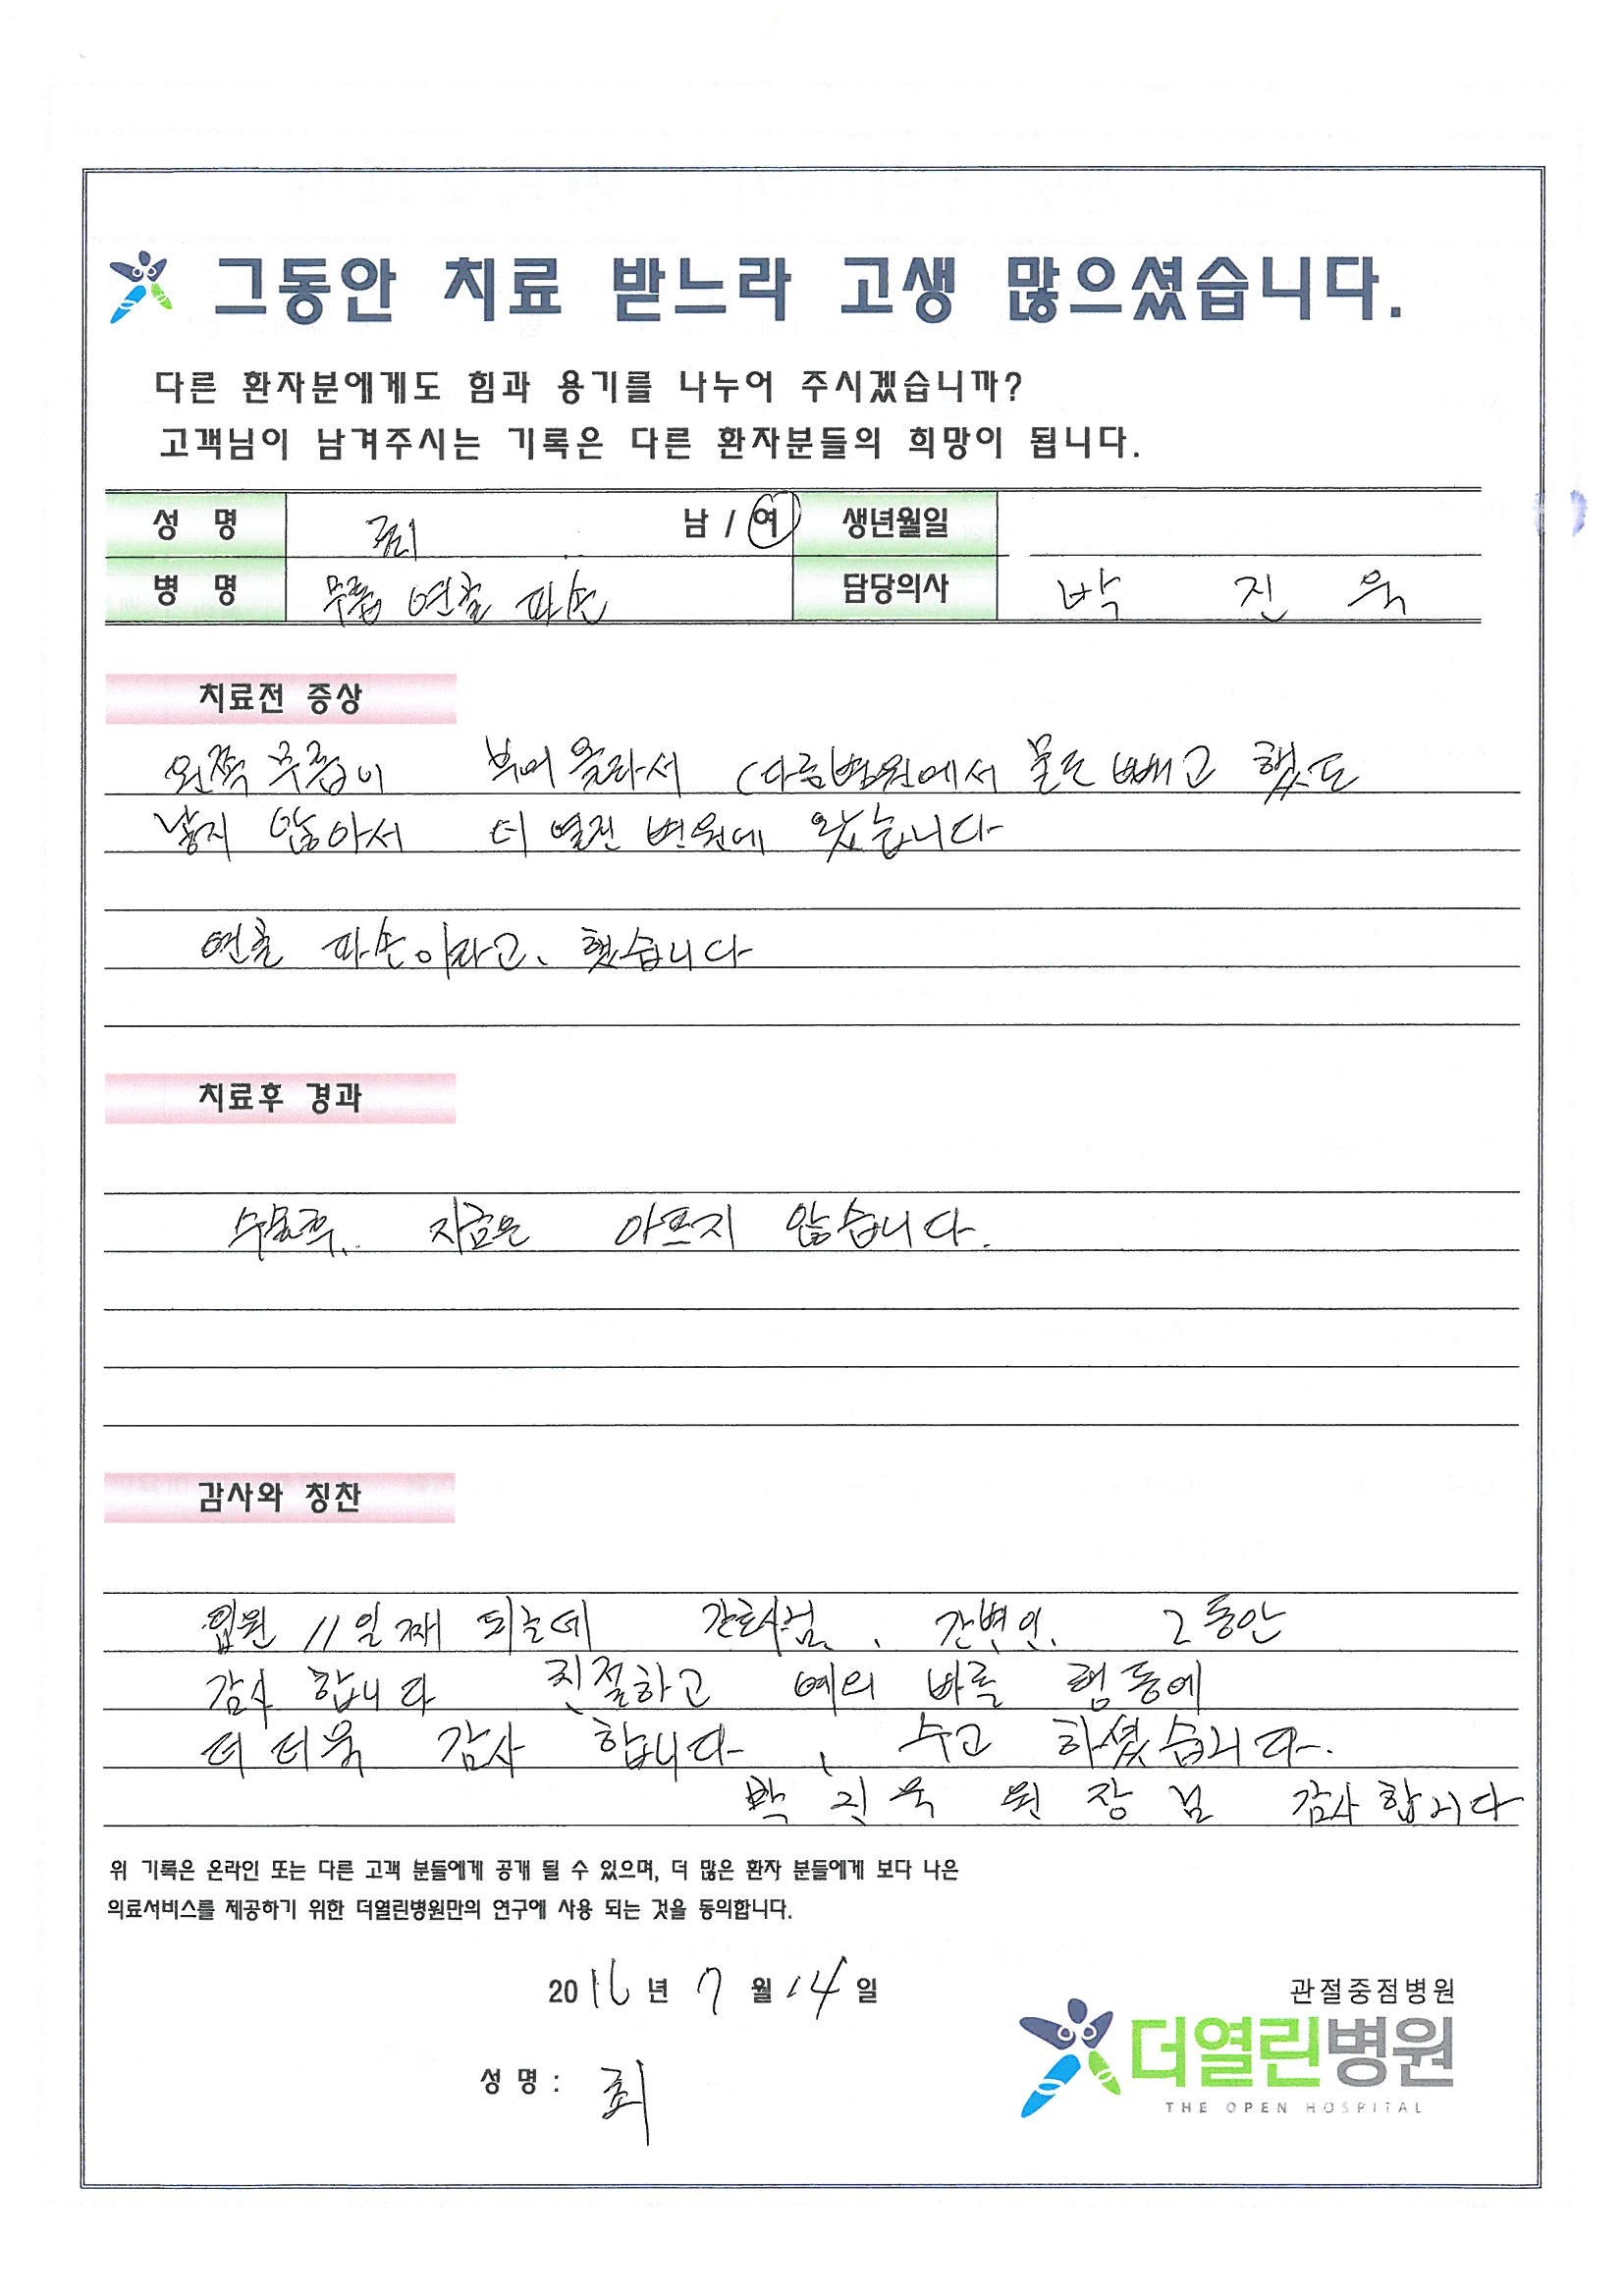 그동안 치료 받느라 고생 많으셨습니다.
다른 환자분에게도 힘과 용기를 나누어 주시겠습니까?
고객님이 남겨주시는 기록은 다른 환자분들의 희망이 됩니다.
성 명 최 남 / 여 생년월일
병 명 무릎 연골 파손 담당의사 박 진 욱
치료전 증상
왼쪽 무릎이 부어 올라서 (다른병원에서 물도 빼고 했도
낳지 않아서 더 열린 병원에 왔습니다
연골 파손이라고. 했습니다
치료후 경과
수술후.. 지금은 아프지 않습니다.
감사와 칭찬
입원 11일째 되는데 간호사님. 간병인. 그동안
감사 합니다 친절하고 예의 바른 행동에
더 더욱 감사 합니다, 수고 하셨습니다.
박 진욱 원 장 님 감사 합니다
위 기록은 온라인 또는 다른 고객 분들에게 공개 될 수 있으며, 더 많은 환자 분들에게 보다 나은
의료서비스를 제공하기 위한 더열린병원만의 연구에 사용 되는 것을 동의합니다.
2016년 7월 14일
성 명 : 최
관절중점병원
더열린병원
THE OPEN HOSPITAL